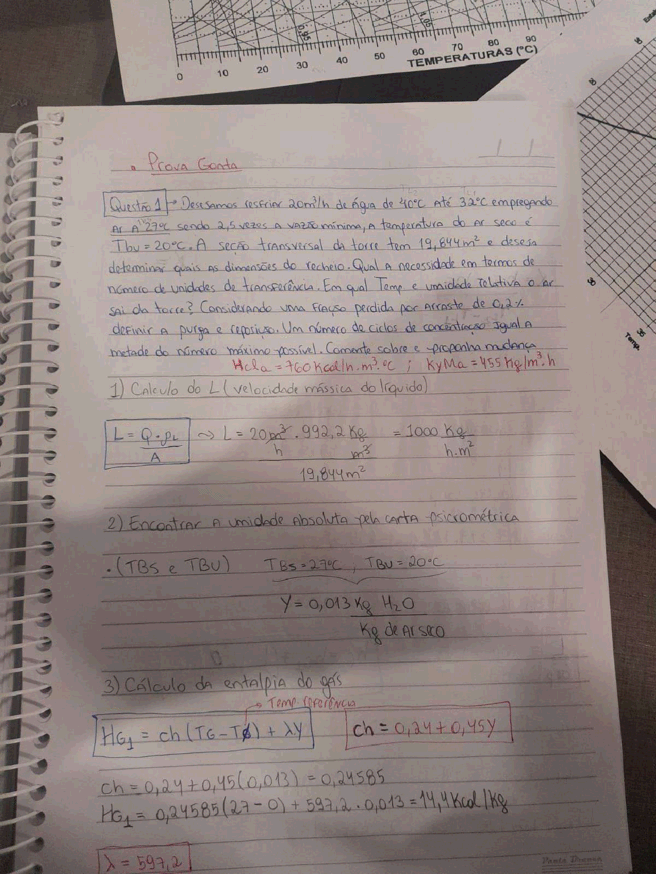 0 10 20 30 40 50 60 70 80 90
TEMPERATURAS (°C)
• Prova Gonta
Questão 1 → Desejamos resfriar 20m³/h de água de 40°C Até 32°C empregando
Ar A 27°C sendo 2,5 vezes a vazão mínima, a temperatura do Ar seco é
Tbu = 20°C. A secão transversal da torre tem 19,844m² e deseja
determinar quais as dimensões do recheio. Qual a necessidade em termos de
número de unidades de transferência. Em qual Temp e umidade relativa o ar
sai da torre? Considerando uma fração perdida por Arraste de 0,2%
definir a purga e reposição. Um número de ciclos de concentração Igual A
metade do número máximo possível. Comente sobre e proponha mudança
Hcla = 760 Kcal/h.m³.°C ; KyMa = 455 Kg/m³.h
1) Calculo do L (velocidade mássica do líquido)
L = Q.ρL / A ~> L = 20 m³/h . 992,2 Kg/m³ / 19,844m² = 1000 Kg/h.m²
2) Encontrar A umidade Absoluta pela carta psicrométrica
• (TBS e TBU) TBS = 27°C, TBU = 20°C
Y = 0,013 Kg H₂O
Kg de Ar seco
3) Cálculo da entalpia do gás
→ Temp referência
HG₁ = ch (TG - T0) + λY ch = 0,24 + 0,45Y
ch = 0,24 + 0,45 (0,013) = 0,24585
HG₁ = 0,24585 (27 - 0) + 597,2 . 0,013 = 14,4 Kcal/Kg
λ = 597,2